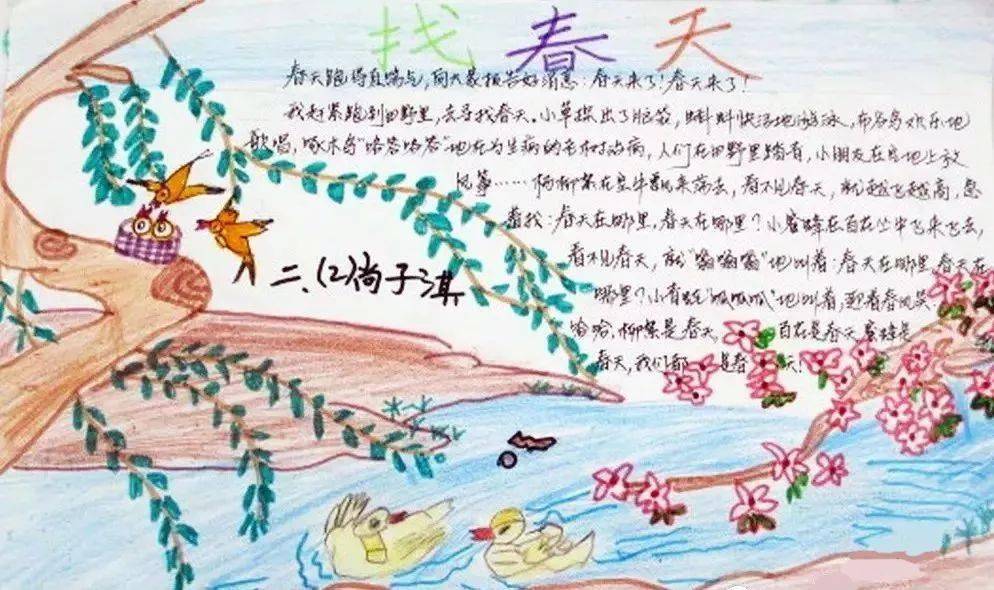 找春天
春天跑得直喘气,向大家报告好消息:春天来了!春天来了!
我赶紧跑到田野里,去寻找春天。小草探出了脑袋,蝌蚪快活地游泳,布谷鸟欢乐地
歌唱,啄木鸟"咯答咯答"地在为生病的老树治病,人们在田野里踏青,小朋友在草地上放
风筝……杨柳絮在空中飘来荡去,看不见春天,就越飞越高,急
着找:春天在哪里,春天在哪里?小蜜蜂在百花丛中飞来飞去,
看不见春天,就"嗡嗡嗡"地叫着:春天在哪里春天在
哪里?小青蛙"呱呱呱"地叫着,迎着春风笑
哈哈,柳絮是春天,百花是春天蜜蜂是
春天,我们都是春天!
二、(2)尚子淇